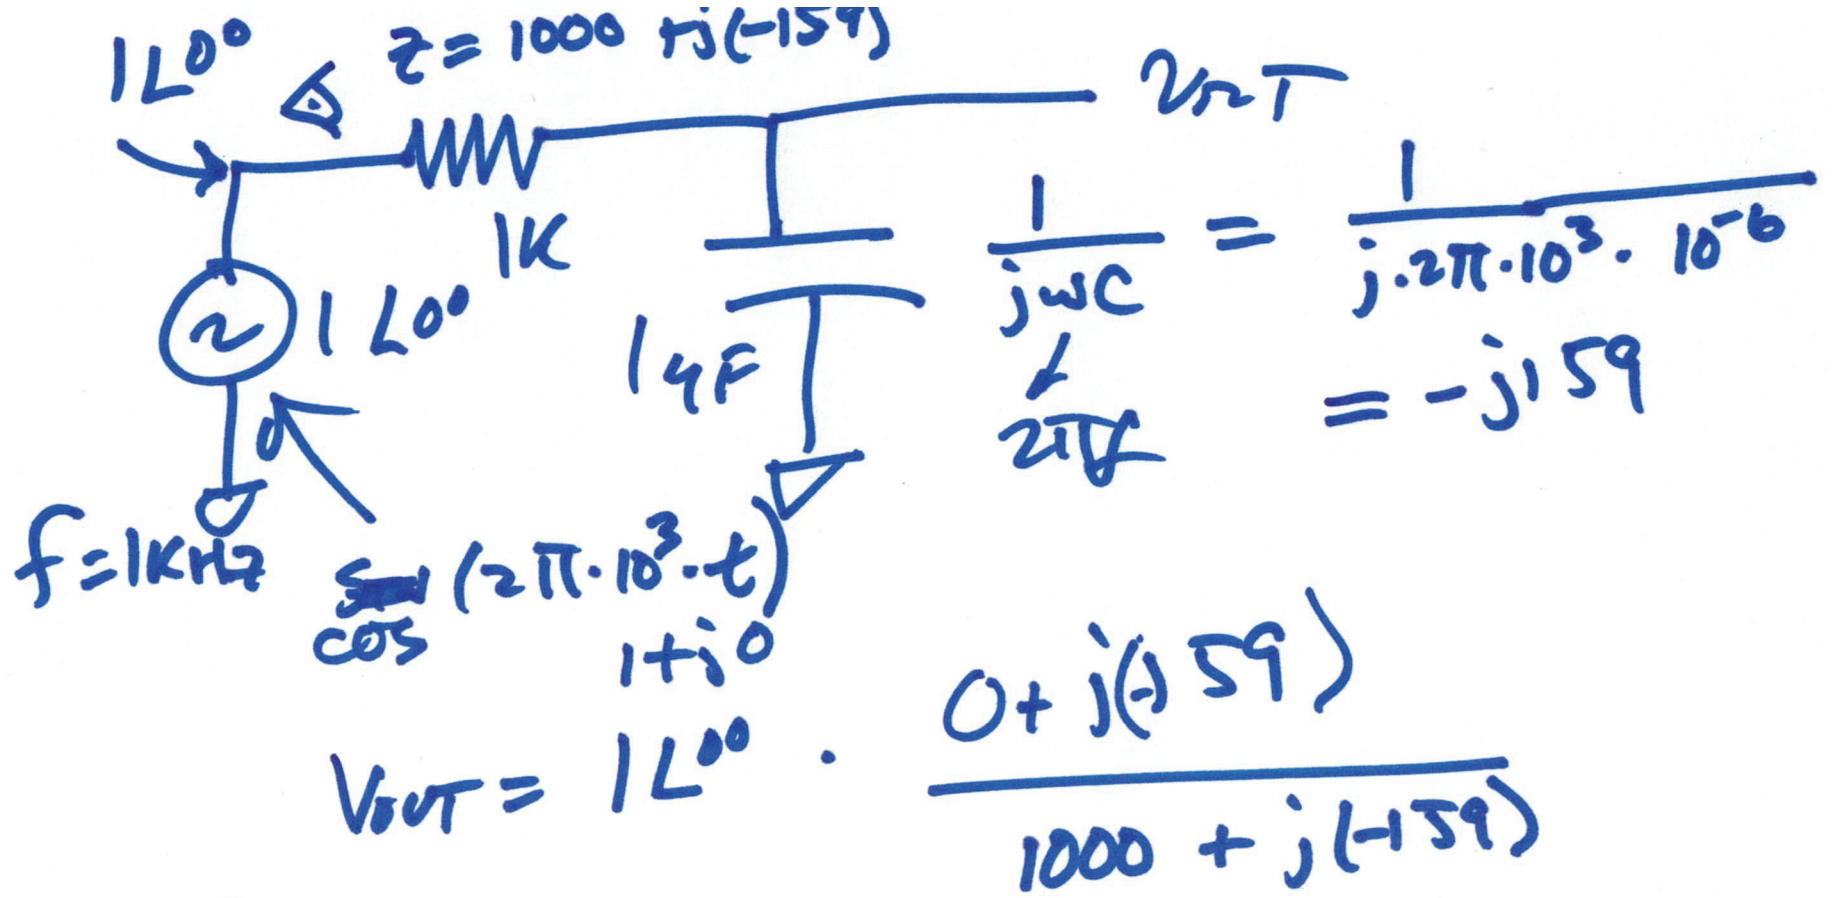 1∠0°
z = 1000 + j(-159)
VOUT
1K
1∠0°
1µF
1/jωC = 1/j·2π·10³·10⁻⁶
2πf
= -j159
f=1KHz
cos (2π·10³·t)
1+j0
VOUT = 1∠0° · 0+j(-159)/1000 + j(-159)